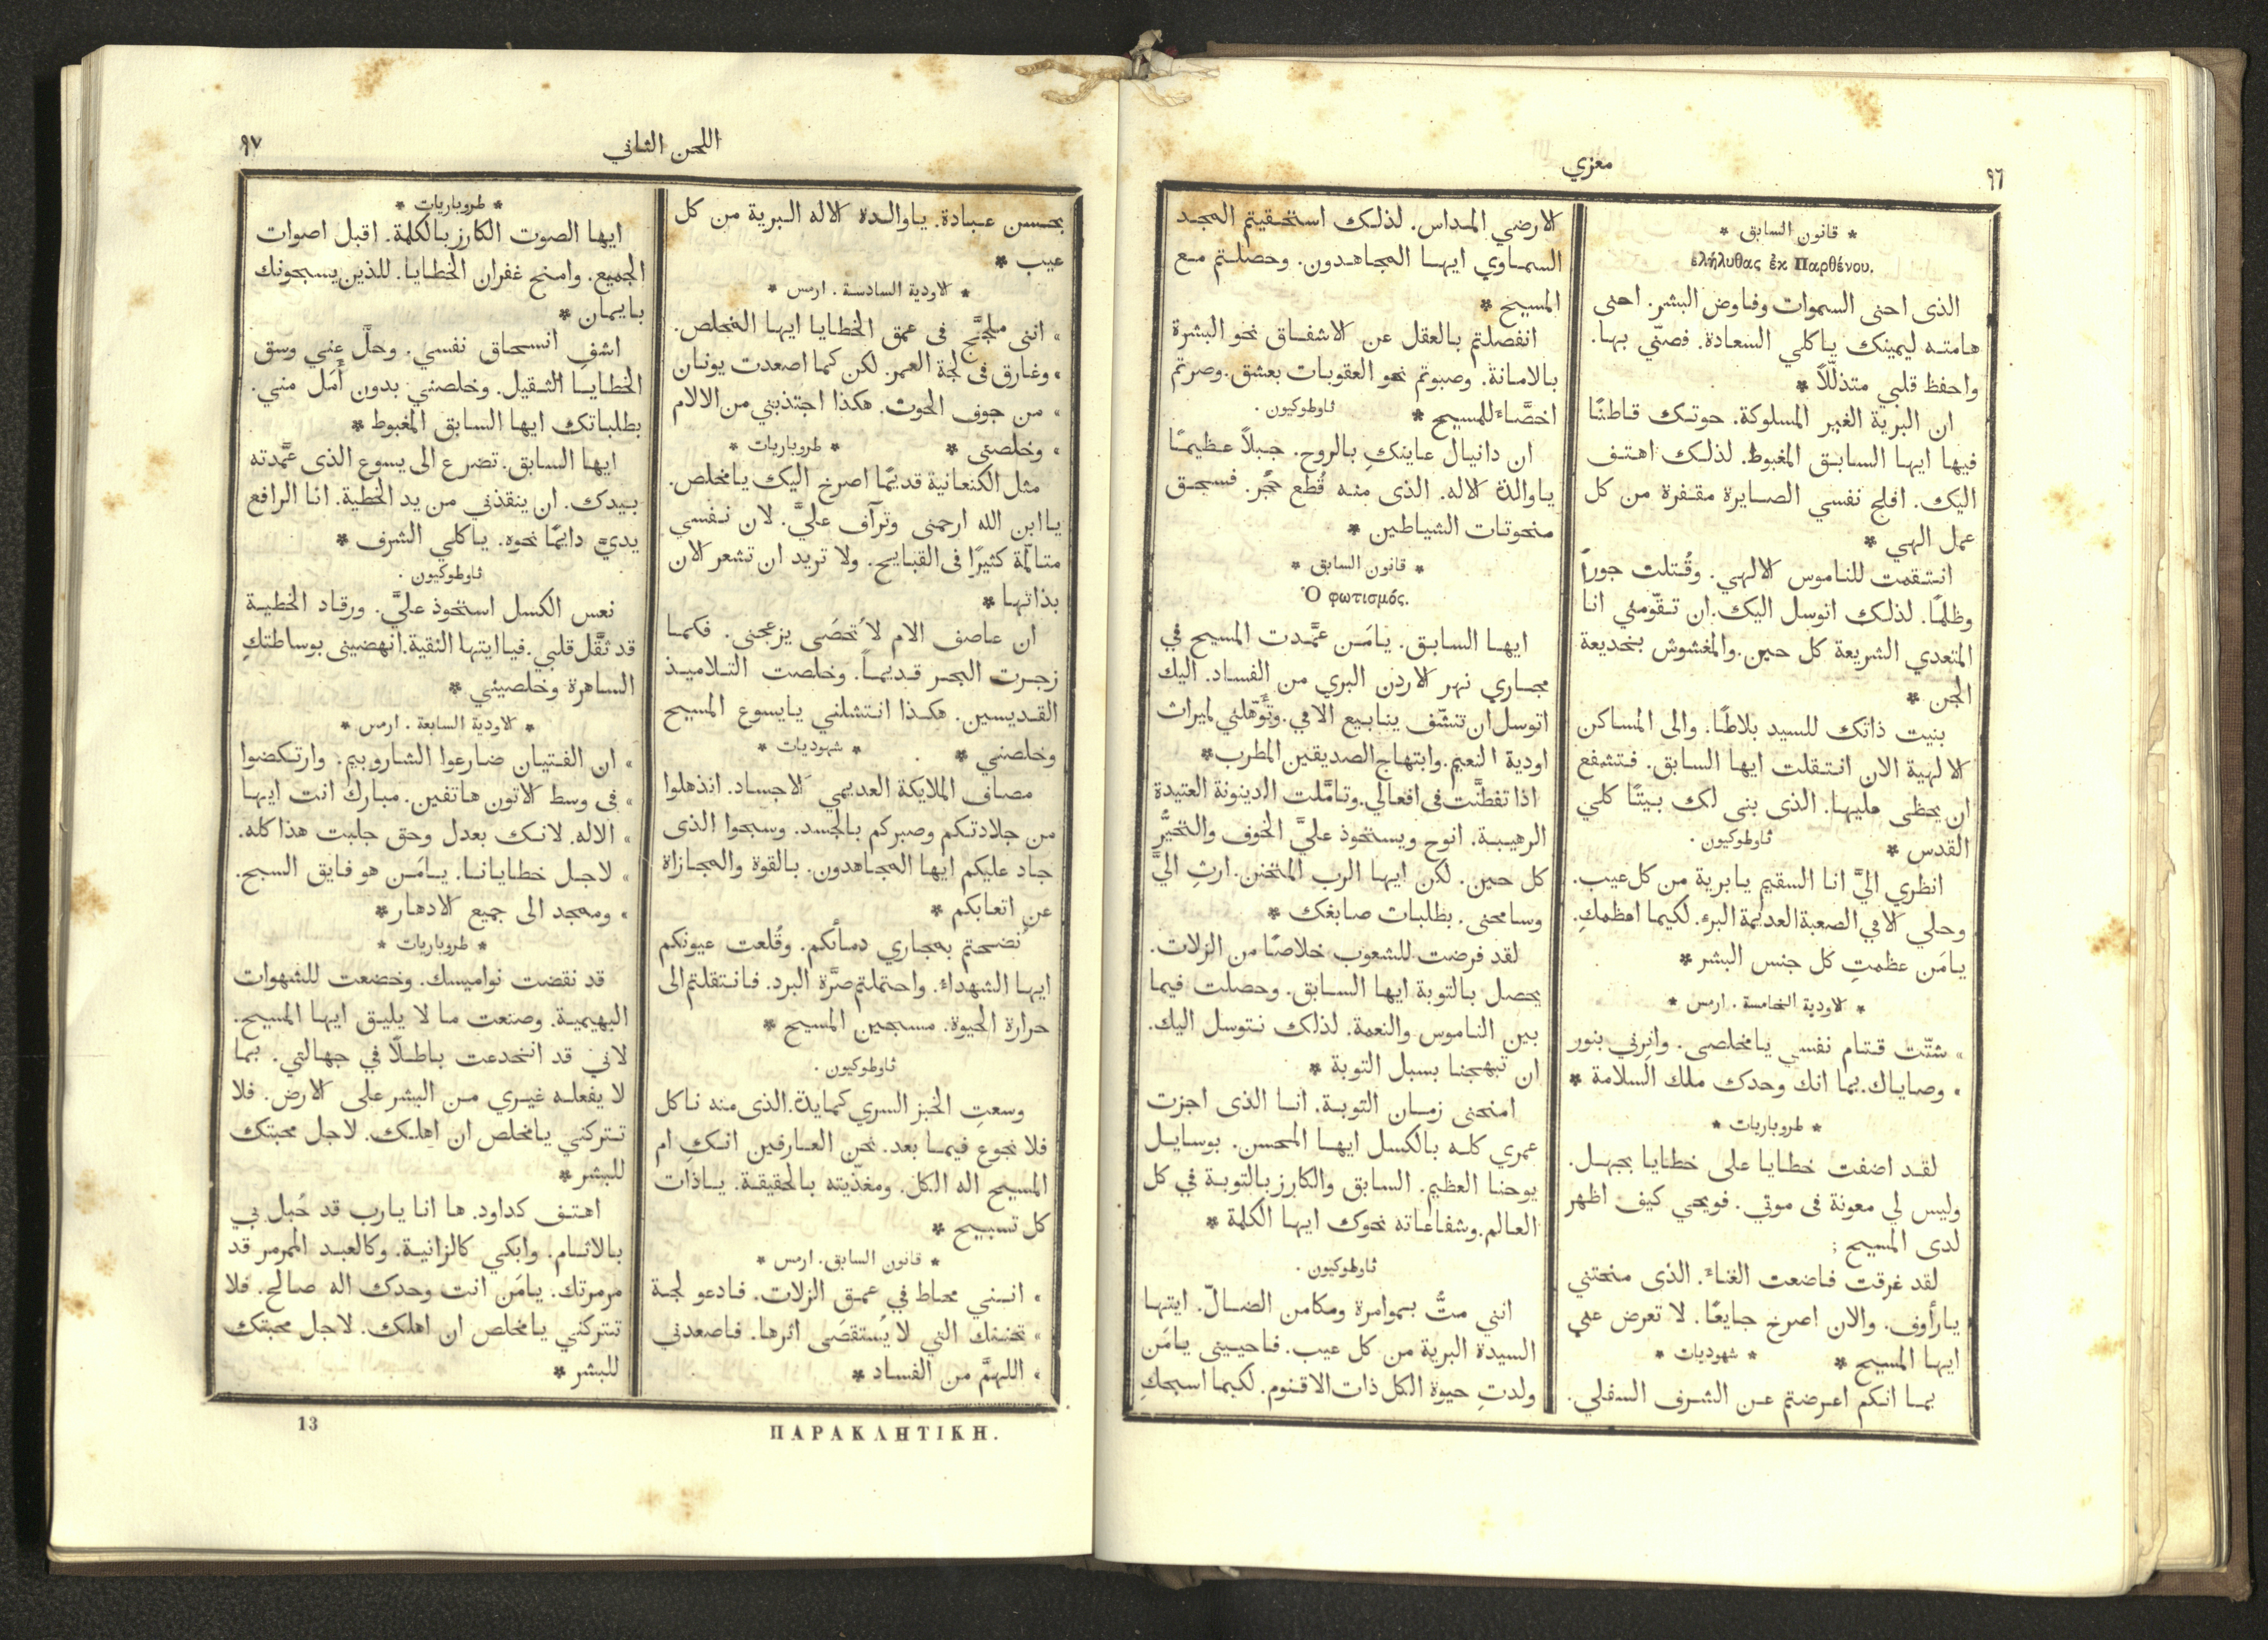 ٩٦
معزي
* قانون السابق *
ἐλήλυθας ἐκ Παρθένου.
الذى احنى السموات وفاوض البشر. احنى
هامته ليمينك ياكلي السعادة. فصنّي بها.
واحفظ قلبي متذللًا *
ان البرية الغير المسلوكة. حوتك قاطنًا
فيها ايها السابق المغبوط. لذلك اهتف
اليك. افلح نفسي الصايرة مقفرة من كل
عمل الهي *
انتقمت للناموس الالهي. وقُتلت جورًا
وظلمًا. لذلك اتوسل اليك. ان تقّومني انا
المتعدي الشريعة كل حين. والمغشوش بخديعة
الجن *
بنيت ذاتك للسيد بلاطًا. والى المساكن
الالهية الان انتقلت ايها السابق. فتشفع
ان يحظى مليها. الذى بنى لك بيتًا كلي
القدس * ثاوطوكيون .
انظري اليَّ انا السقيم يابرية من كل عيب.
وحلي الامي الصعبة العديمة البرء. لكيما اعظمكِ.
يامَن عظمتِ كل جنس البشر *
* الاودية الخامسة . ارمس *
» شتّت قتام نفسي يامخلصي. وانرني بنور
» وصاياك. بما انك وحدك ملك السلامة *
* طروباريات *
لقد اضفت خطايا على خطايا بجهل.
وليس لي معونة فى موتي. فويحي كيف اظهر
لدى المسيح ;
لقد غرقت فاضعت الغناءَ. الذى منحتني
يارأوف. والان اصرخ جايعًا. لا تعرض عني
ايها المسيح * * شهوديات *
بما انكم اعرضتم عن الشرف السفلي.
الارضي المداس. لذلك استحقيتم المجد
السماوي ايها المجاهدون. وحصلتم مع
المسيح *
انفصلتم بالعقل عن الاشفاق نحو البشرة
بالامانة. وصبوتم نحو العقوبات بعشق. وصرتم
اخصَّاءَ للمسيح * ثاوطوكيون .
ان دانيال عاينكِ بالروح. جبلًا عظيمًا
ياوالدة الاله. الذى منه قُطع حجر. فسحق
منحوتات الشياطين *
* قانون السابق *
Ὁ φωτισμός.
ايها السابق. يامَن عمَّدت المسيح في
مجاري نهر الاردن البري من الفساد. اليك
اتوسل ان تنشّف ينابيع الامي. وتؤّهلني لميراث
اودية النعيم. وابتهاج الصديقين المطرب *
اذا تفطنَّت فى افعالي. وتامَّلت الدينونة العتيدة
الرهيبة. انوح ويستحوذ عليَّ الخوف والتحيُّر
كل حين. لكن ايها الرب المتحنن. ارثِ اليَّ
وسامحنى. بطلبات صابغك *
لقد فرضت للشعوب خلاصًا من الزلات.
يحصل بالتوبة ايها السابق. وحصلت فيما
بين الناموس والنعمة. لذلك نتوسل اليك.
ان تبهجنا بسبل التوبة *
امنحنى زمان التوبة. انا الذى اجزت
عمري كله بالكسل ايها المحسن. بوسايل
يوحنا العظيم. السابق والكارز بالتوبة في كل
العالم. وشفاعاته نحوك ايها الكلمة *
ثاوطوكيون .
انني متُّ بموامرة ومكامن الضالّ. ايتها
السيدة البرية من كل عيب. فاحييني يامَن
ولدتِ حيوة الكل ذات الاقنوم. لكيما اسبحكِ
اللحن الثاني
٩٧
بحسن عبادة. ياوالدة الاله البرية من كل
عيب *
* الاودية السادسة . ارمس *
» اننى ملجَّج فى عمق الخطايا ايها المخلص.
» وغارق فى لجة العمر. لكن كما اصعدت يونان
» من جوف الحوت. هكذا اجتذبني من الالام
» وخلصنى * * طروباريات *
مثل الكنعانية قديمًا اصرخ اليك يامخلص.
ياابن الله ارحمنى وترآف عليَّ. لان نفسي
متالّمة كثيرًا فى القبايح. ولا تريد ان تشعر الان
بذاتها *
ان عاصف الام لاتُحصَى يزعجنى. فكما
زجرت البحر قديمًا. وخلصت التلاميذ
القديسين. هكذا انتشلني يايسوع المسيح
وخلصنى * * شهوديات *
مصاف الملايكة العديمي الاجساد. انذهلوا
من جلادتكم وصبركم بالجسد. وسبحوا الذى
جاد عليكم ايها المجاهدون. بالقوة والمجازاة
عن اتعابكم *
نُضحتم بمجاري دمائكم. وقُلعت عيونكم
ايها الشهداءَ. واحتملتم صرَّة البرد. فانتقلتم الى
حرارة الحيوة. مسبحين المسيح *
ثاوطوكيون .
وسعتِ الخبز السري كمايدة. الذى منه ناكل
فلا نجوع فيما بعد. نحن العارفين انكِ ام
المسيح اله الكل. ومغذّيته بالحقيقة. ياذات
كل تسبيح *
* قانون السابق. ارمس *
» انني محاط في عمق الزلات. فادعو لجة
» تحننك التي لا يُستقصَى اثرها. فاصعدني
» اللهمَّ من الفساد *
* طروباريات *
ايها الصوت الكارز بالكلمة. اقبل اصوات
الجميع. وامنح غفران الخطايا. للذين يسبحونك
بايمان *
اشفِ انسحاق نفسي. وحلَّ عني وسق
الخطايا الثقيل. وخلصني بدون أَمَل مني.
بطلباتك ايها السابق المغبوط *
ايها السابق. تضرع الى يسوع الذى عمَّدته
بيدك. ان ينقذني من يد الخطية. انا الرافع
يديَّ دايمًا نحوه. ياكلي الشرف *
ثاوطوكيون .
نعس الكسل استحوذ عليَّ. ورقاد الخطية
قد ثقَّل قلبي. فياايتها النقية. انهضيني بوساطتكِ
الساهرة وخلصيني *
* الاودية السابعة . ارمس *
» ان الفتيان ضارعوا الشاروبيم. وارتكضوا
» فى وسط الاتون هاتفين. مبارك انت ايها
» الاله. لانك بعدل وحق جلبت هذا كله.
» لاجل خطايانا. يامَن هو فايق السبح.
» وممجد الى جميع الادهار *
* طروباريات *
قد نقضت نواميسك. وخضعت للشهوات
البهيمية. وصنعت ما لا يليق ايها المسيح.
لاني قد انخدعت باطلًا في جهالتي. بما
لا يفعله غيري من البشر على الارض. فلا
تتركني يامخلص ان اهلك. لاجل محبتك
للبشر *
اهتف كداود. ها انا يارب قد حُبل بي
بالاثام. وابكي كالزانية. وكالعبد الممرمر قد
مرمرتك. يامَن انت وحدك اله صالح. فلا
تتركني يامخلص ان اهلك. لاجل محبتك
للبشر *
ΠΑΡΑΚΛΗΤΙΚΗ.
13